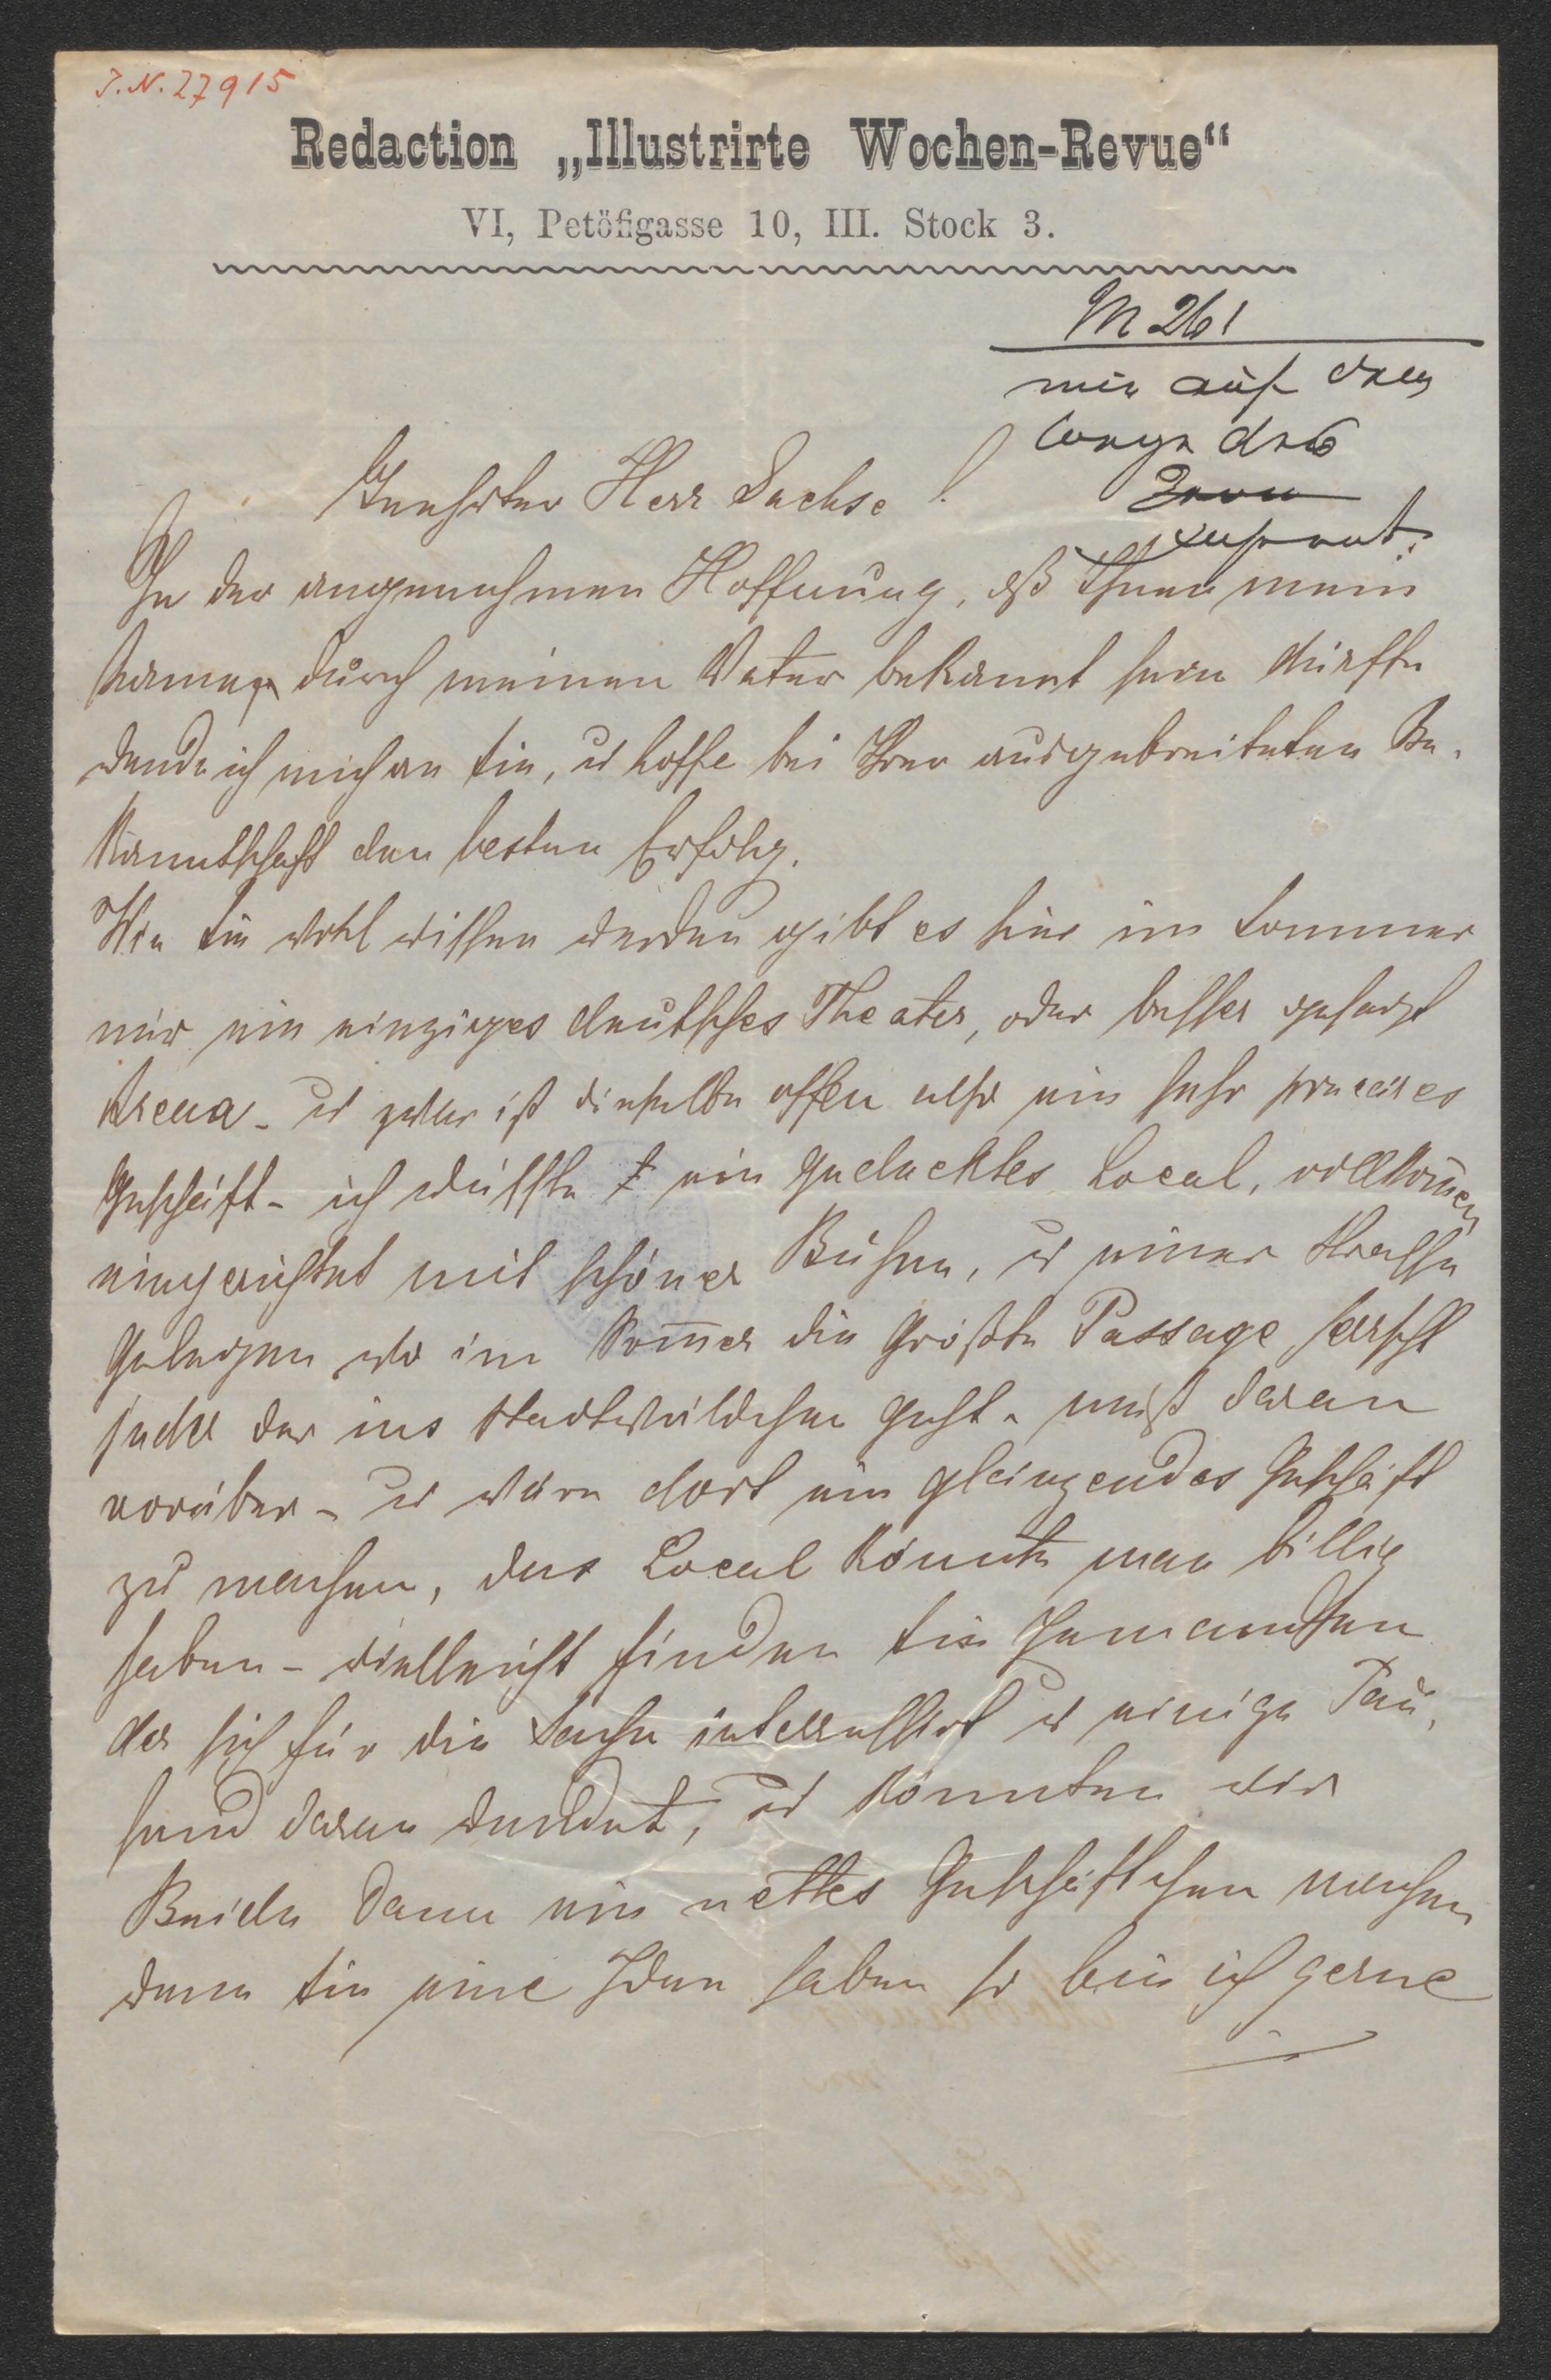 J.N. 27915
Redaction „Illustrirte Wochen-Revue“
VI, Petöfigasse 10, III. Stock 3.
M 261
mir auf dem
Wege des
Geehrter Herr Sachse!
In der angenehmen Hoffnung, dß Ihnen mein
Name durch meinen Vater bekannt sein dürfte
wende ich mich an Sie, u hoffe bei Ihrer ausgebreiteten Be-
kanntschaft den besten Erfolg.
Wie Sie wohl wissen werden gibt es hier im Sommer
nur ein einziges deutsches Theater, oder besser gesagt
Arena - u zwar ist dieselbe offen also ein sehr
Geschäft - ich wüsste ein gedecktes Local, vollkom̄en
eingerichtet mit schöner Bühne, u einer Strasse
gelegen wo im Som̄er die größte Passage herrscht
jeder der ins Stadtwäldchen geht - muß daran
vorüber - u wäre dort ein glänzendes Geschäft
zu machen, das Local könnte man billig
haben - vielleicht finden Sie Jemandten
der sich für die Sache interessirt u einige Tau-
send daran wendet, u könnten wir
Beide dann ein nettes Geschäftchen machen
wenn Sie eine Idee haben so bin ich gerne